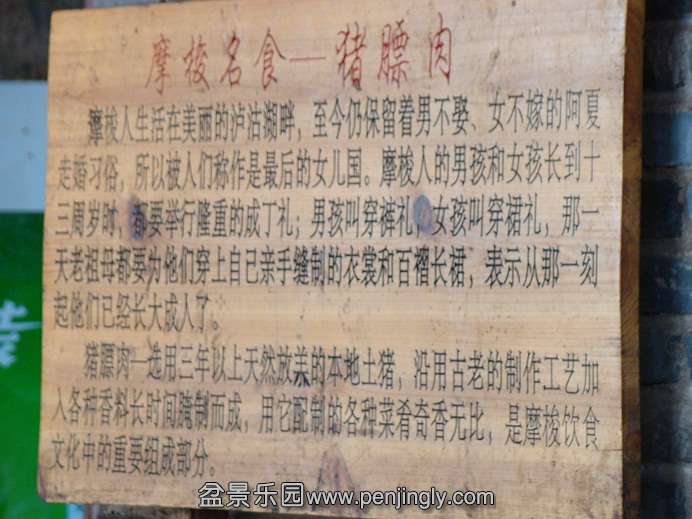 摩梭名食—猪膘肉
摩梭人生活在美丽的泸沽湖畔，至今仍保留着男不娶、女不嫁的阿夏
走婚习俗，所以被人们称作是最后的女儿国。摩梭人的男孩和女孩长到十
三周岁时，都要举行隆重的成丁礼；男孩叫穿裤礼，女孩叫穿裙礼，那一
天老祖母都要为他们穿上自己亲手缝制的衣裳和百褶长裙，表示从那一刻
起他们已经长大成人了。
猪膘肉—选用三年以上天然放养的本地土猪，沿用古老的制作工艺加
入各种香料长时间腌制而成，用它配制的各种菜肴奇香无比，是摩梭饮食
文化中的重要组成部分。
盆景乐园www.penjingly.com